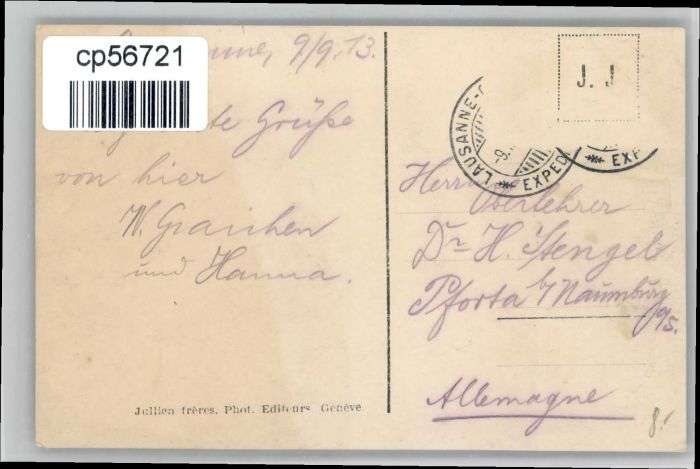 cp56721
9/9.13.
Grüße
von hier
W. Graichen
und Hanna.
Jullien frères, Phot. Editeurs Genève
J. J
LAUSANNE-
EXPED
-9.
EXP
Herrn
Oberlehrer
Dr H. Stengel
Pforta b/ Naumburg
a/S.
Allemagne
8.-